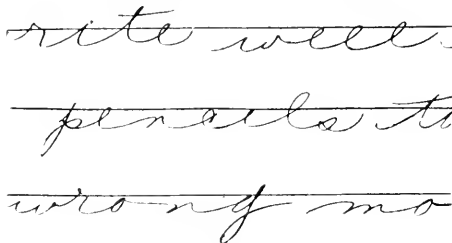 rite well
pencils to
wrong mo